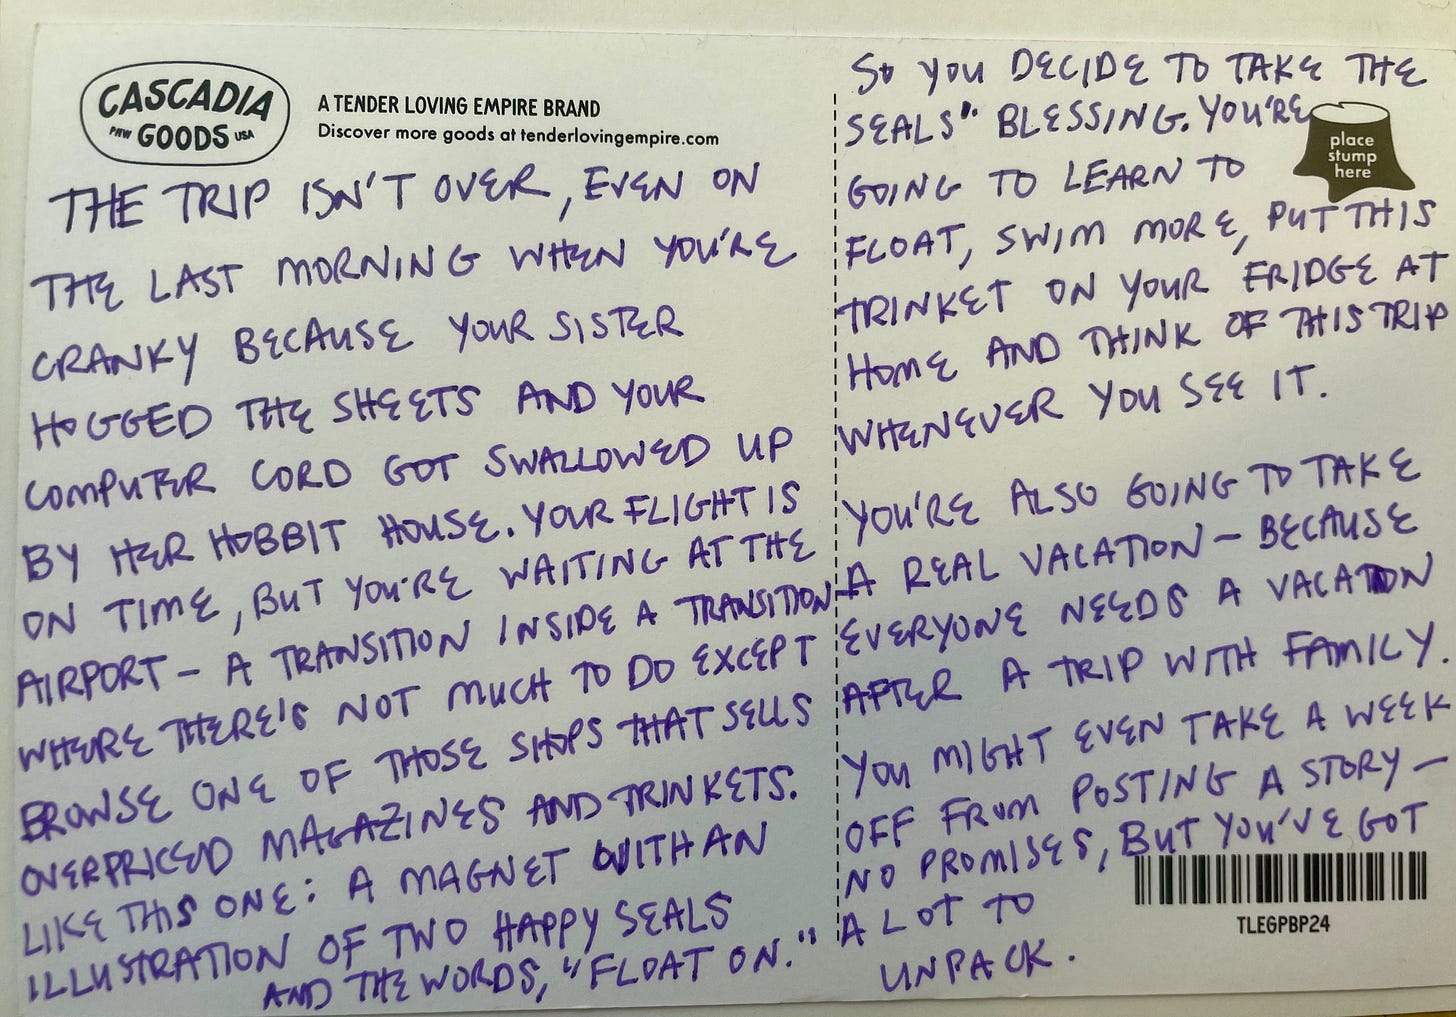 CASCADIA
PNW GOODS USA
A TENDER LOVING EMPIRE BRAND
Discover more goods at tenderlovingempire.com
THE TRIP ISN'T OVER, EVEN ON
THE LAST MORNING WHEN YOU'RE
CRANKY BECAUSE YOUR SISTER
HOGGED THE SHEETS AND YOUR
COMPUTER CORD GOT SWALLOWED UP
BY HER HOBBIT HOUSE. YOUR FLIGHT IS
ON TIME, BUT YOU'RE WAITING AT THE
AIRPORT - A TRANSITION INSIDE A TRANSITION -
WHERE THERE'S NOT MUCH TO DO EXCEPT
BROWSE ONE OF THOSE SHOPS THAT SELLS
OVERPRICED MAGAZINES AND TRINKETS.
LIKE THIS ONE: A MAGNET WITH AN
ILLUSTRATION OF TWO HAPPY SEALS
AND THE WORDS, "FLOAT ON."
SO YOU DECIDE TO TAKE THE
SEALS" BLESSING. YOU'RE
GOING TO LEARN TO
FLOAT, SWIM MORE, PUT THIS
TRINKET ON YOUR FRIDGE AT
HOME AND THINK OF THIS TRIP
WHENEVER YOU SEE IT.
YOU'RE ALSO GOING TO TAKE
A REAL VACATION - BECAUSE
EVERYONE NEEDS A VACATION
AFTER A TRIP WITH FAMILY.
YOU MIGHT EVEN TAKE A WEEK
OFF FROM POSTING A STORY -
NO PROMISES, BUT YOU'VE GOT
A LOT TO
UNPACK.
place
stump
here
TLEGPBP24